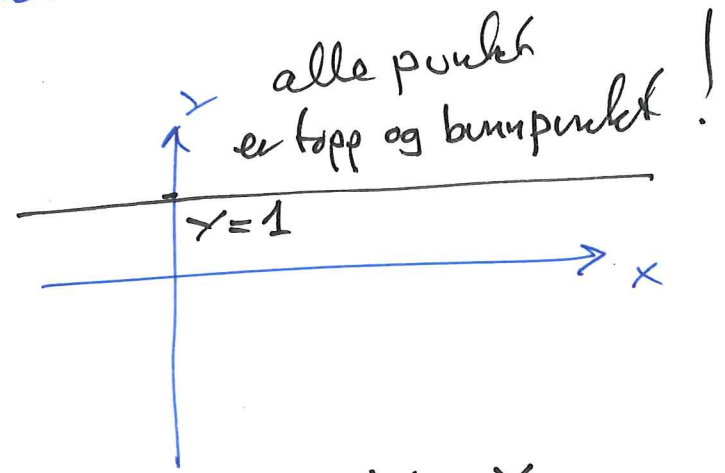 alle punkt
er topp og bunnpunkt !
y
y = 1
x